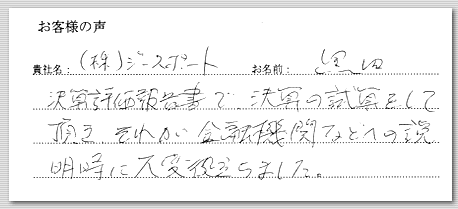 お客様の声
貴社名：(株)ジースポート お名前：黒田
決算評価報告書で 決算の試算をして
頂き それが 金融機関などへの説
明時に大変役立ちました。